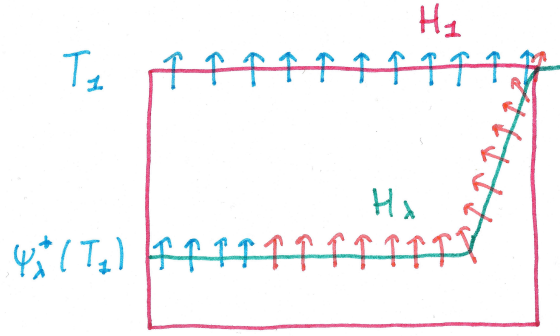 H₁
T₁
H_λ
ψ_λ^+(T₁)